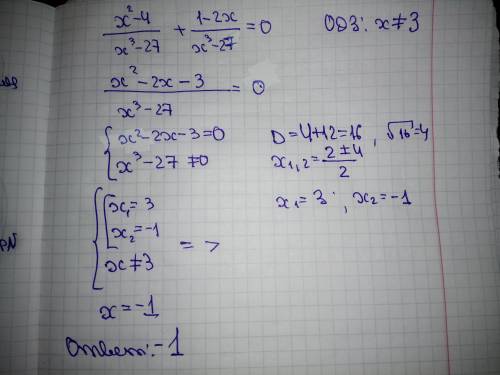 x²-4/x³-27 + 1-2x/x³-27 = 0 ОДЗ: x≠3
x²-2x-3/x³-27 = 0
{x²-2x-3=0 D=4+12=16, √16=4
x³-27≠0 x₁,₂=2±4/2
{[x₁=3 x₁=3; x₂=-1
x₂=-1 =>
x≠3
x=-1
Ответ: -1